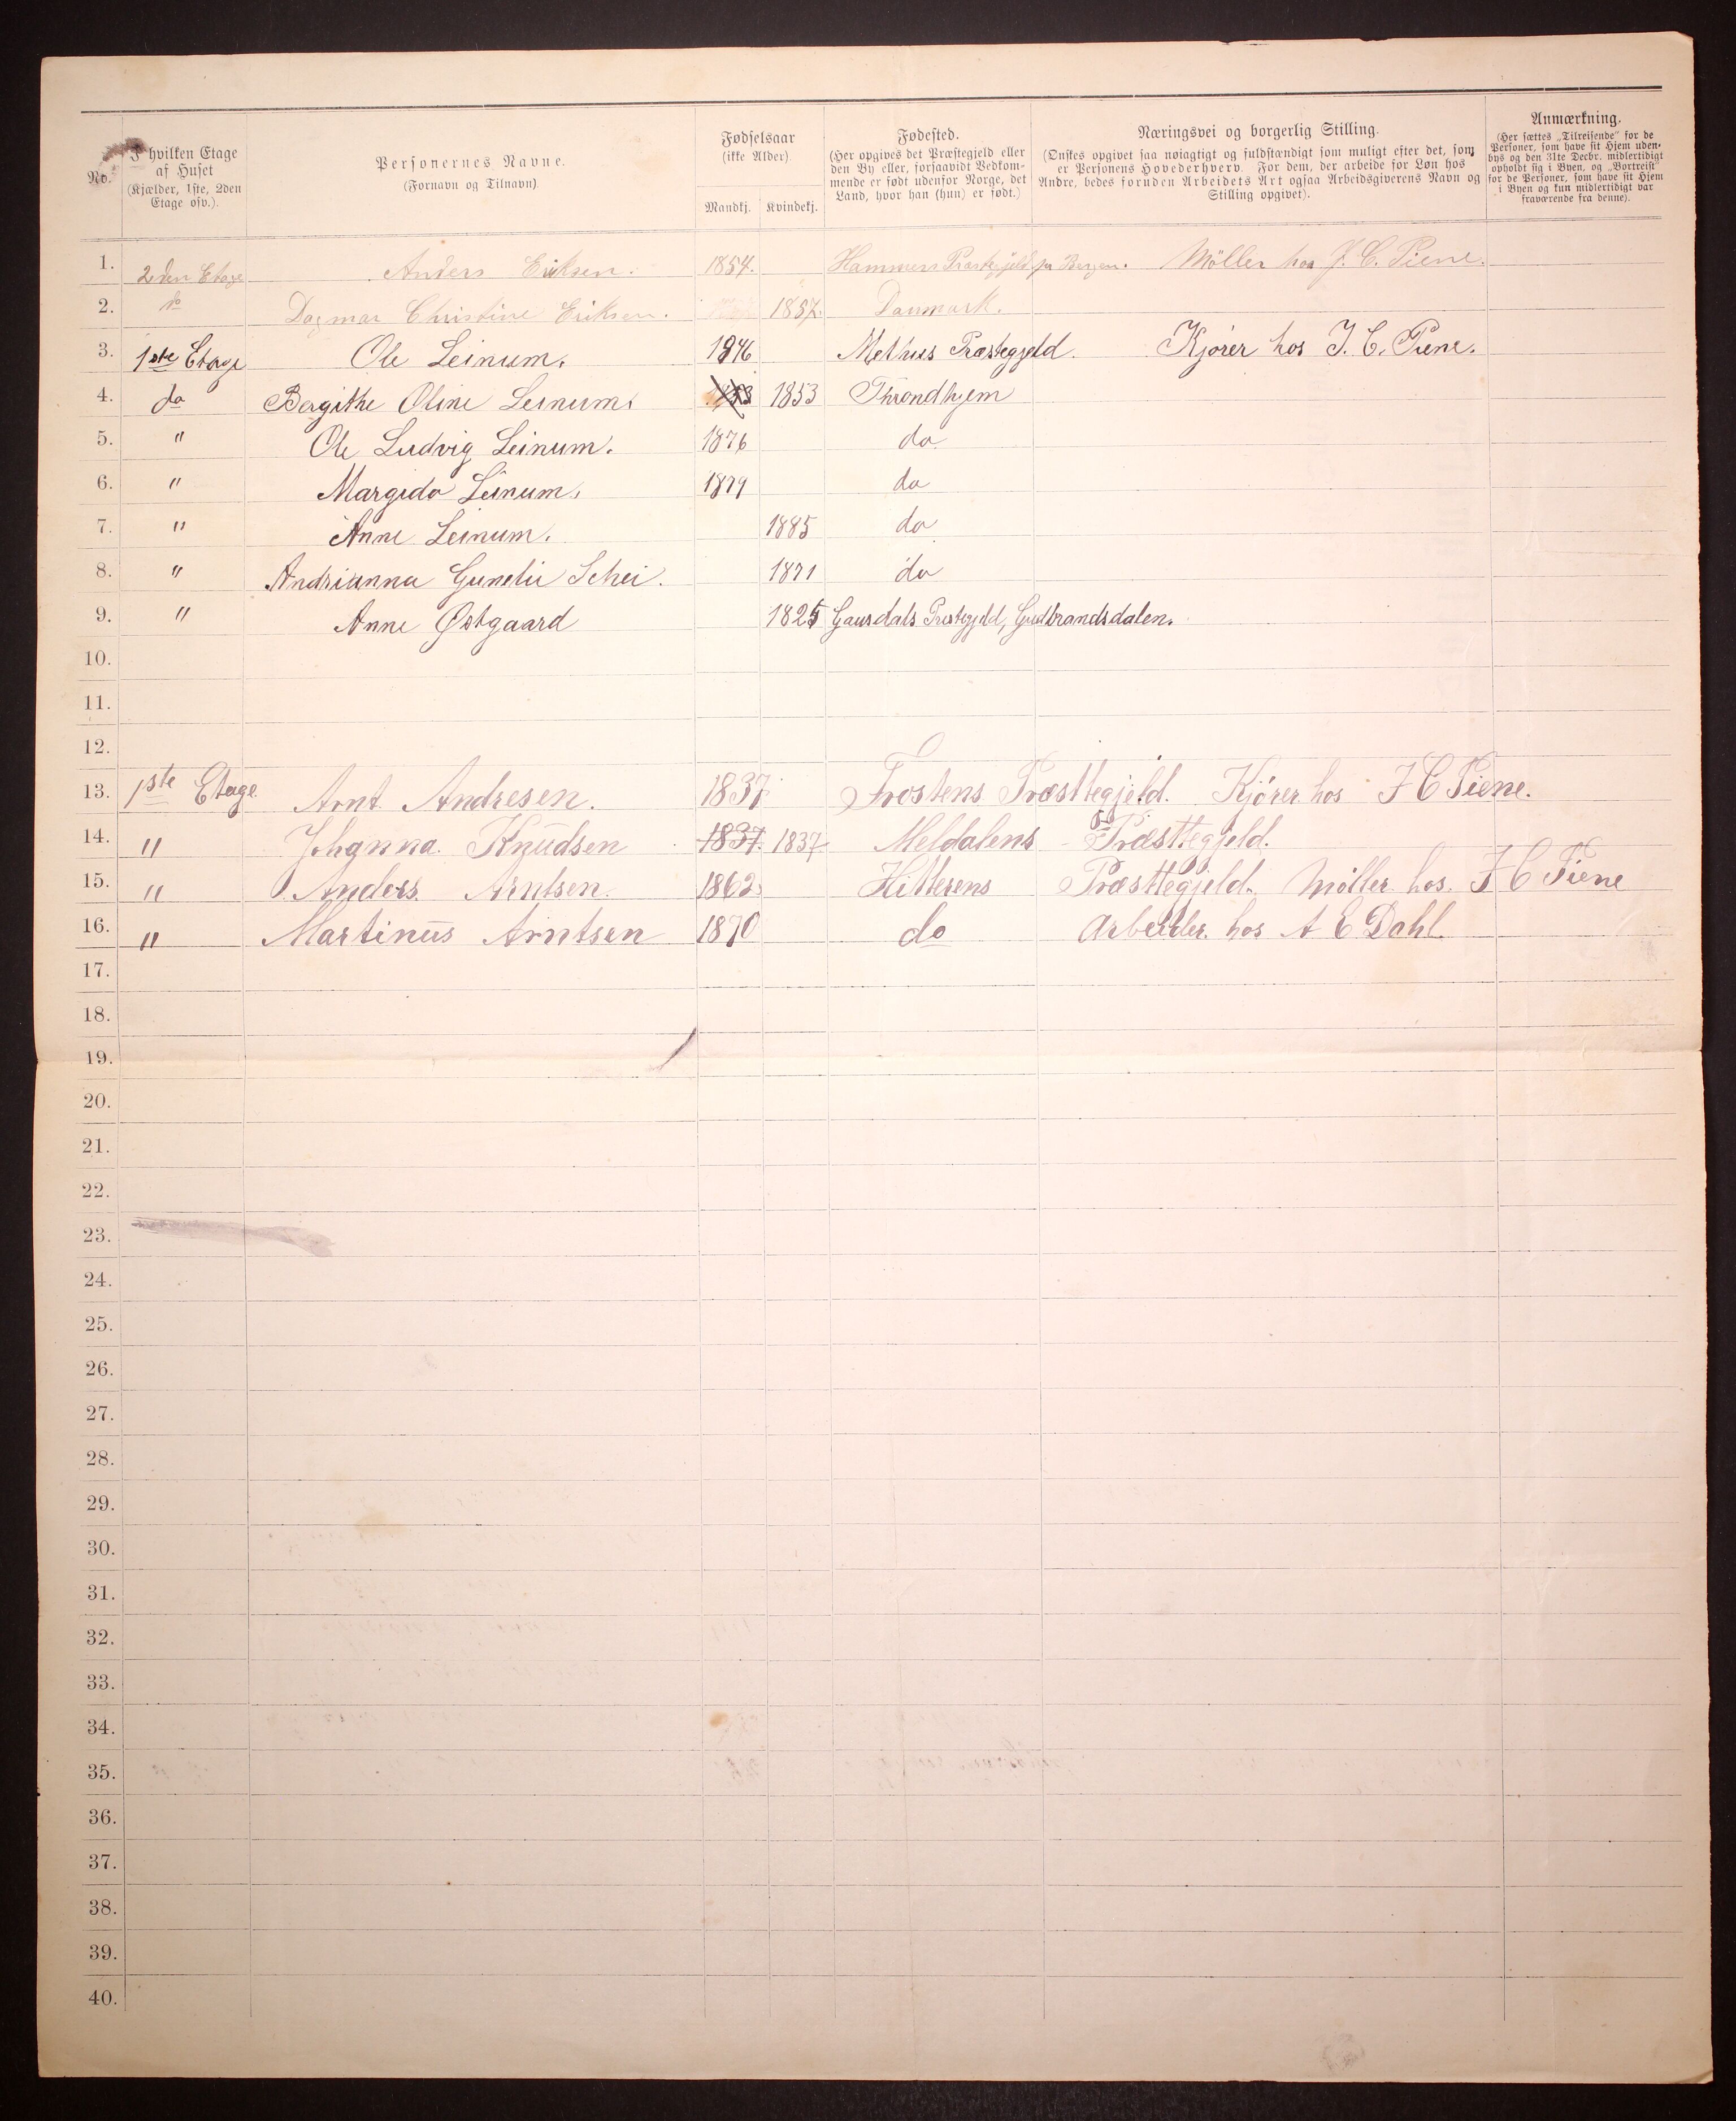 No.
I hvilken Etage af Huset (Kjælder, 1ste, 2den Etage osv.).
Personernes Navne. (Fornavn og Tilnavn)
Fødselsaar (ikke Alder). Mandkj. Kvindekj.
Fødested. (Her opgives det Præstegjeld eller den By eller, forsaavidt Vedkommende er født udenfor Norge, det Land, hvor han (hun) er født.)
Næringsvei og borgerlig Stilling. (Ønskes opgivet saa nøiagtigt og fuldstændigt som muligt efter det, som er Personens Hovederhverv. For dem, der arbeide for Løn hos Andre, bedes foruden Arbeidets Art ogsaa Arbeidsgiverens Navn og Stilling opgivet).
Anmærkning. (Her sættes „Tilreisende" for de Personer, som have sit Hjem udenbys og den 31te Decbr. midlertidigt opholdt sig i Byen, og „Bortreist" for de Personer, som have sit Hjem i Byen og kun midlertidigt var fraværende fra denne).
1. 2den Etage Anders Eriksen. 1854. Hammers Præstegjeld pr Bergen. Møller hos J. C. Piene.
2. do Dagmar Christine Eriksen. 1857. Danmark.
3. 1ste Etage Ole Leinum. 1846 Melhus Præstegjeld. Kjører hos J. C. Piene.
4. do Bergithe Oline Leinum. 1853 Throndhjem
5. " Ole Ludvig Leinum. 1876 do
6. " Margido Leinum. 1879 do
7. " Anne Leinum. 1885 do
8. " Andrianna Gunelie Schei. 1871 do
9. " Anne Østgaard 1825 Gausdals Prestegjeld, Gudbrandsdalen.
10.
11.
12.
13. 1ste Etage Arnt Andresen. 1837 Frostens Præsttegjeld. Kjører hos J C Piene.
14. " Johanna Knudsen 1837 1837 Meldalens Præsttegjeld.
15. " Anders Arntsen. 1862 Hitterens Præsttegjeld. Møller hos. J C Piene
16. " Martinus Arntsen 1870 do Arbeider hos A E Dahl.
17.
18.
19.
20.
21.
22.
23.
24.
25.
26.
27.
28.
29.
30.
31.
32.
33.
34.
35.
36.
37.
38.
39.
40.